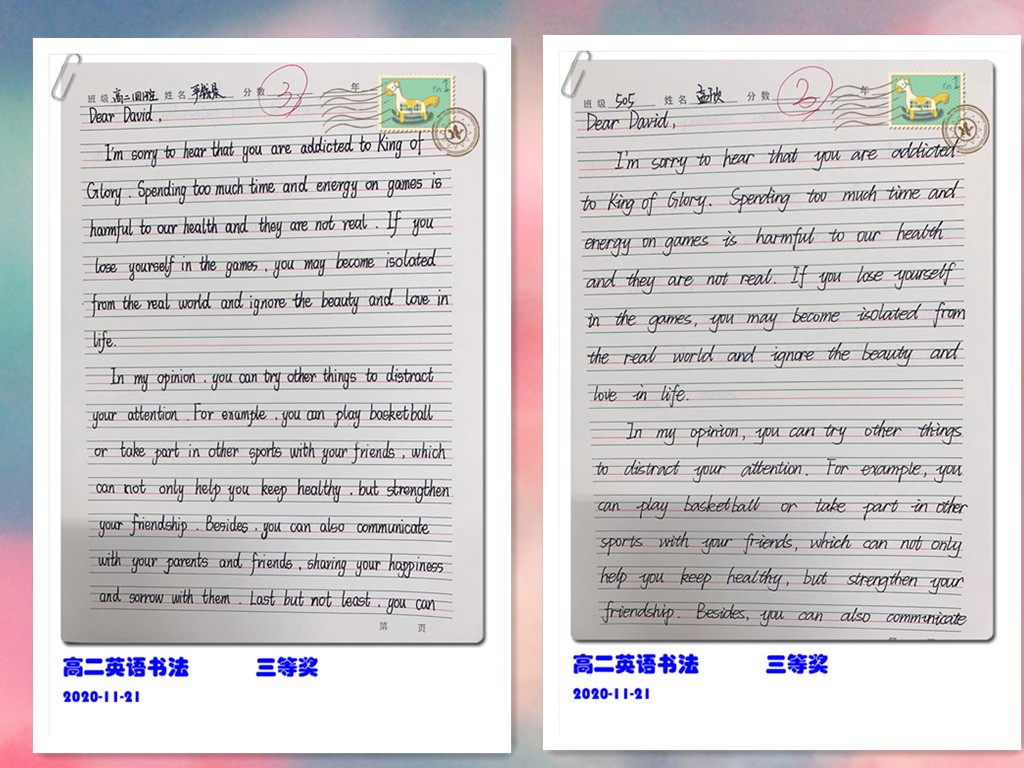 班级 高二 姓名 分数 3 年
Dear David,
I'm sorry to hear that you are addicted to King of
Glory. Spending too much time and energy on games is
harmful to our health and they are not real. If you
lose yourself in the games, you may become isolated
from the real world and ignore the beauty and love in
life.
In my opinion, you can try other things to distract
your attention. For example, you can play basketball
or take part in other sports with your friends, which
can not only help you keep healthy, but strengthen
your friendship. Besides, you can also communicate
with your parents and friends, sharing your happiness
and sorrow with them. Last but not least, you can
第 页
高二英语书法 三等奖
2020-11-21
班级 505 姓名 分数 年
Dear David,
I'm sorry to hear that you are addicted
to King of Glory. Spending too much time and
energy on games is harmful to our health
and they are not real. If you lose yourself
in the games, you may become isolated from
the real world and ignore the beauty and
love in life.
In my opinion, you can try other things
to distract your attention. For example, you
can play basketball or take part in other
sports with your friends, which can not only
help you keep healthy, but strengthen your
friendship. Besides, you can also communicate
高二英语书法 三等奖
2020-11-21